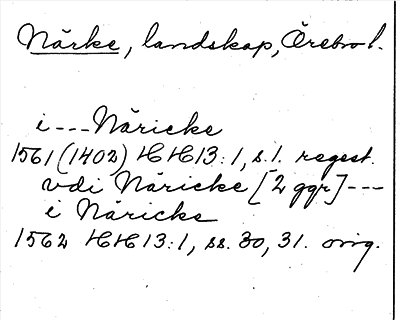 Närke, landskap, Örebro l.
i --- Näricke
1561 (1402) HH 13:1, s. 1. regest.
vdi Näricke [2 ggr] ---
i Näricke
1562 HH 13:1, ss. 30, 31. orig.